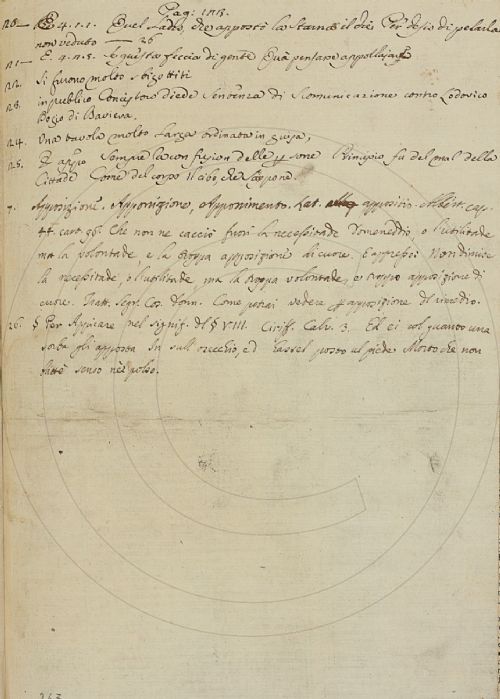 Pag: 1118.
120.— E. 4. 1. 1. Quel Ladro, che appostò la starna il dì. Per desio di pelarla
non veduto — 26
121— E. 4. 11. 5. E questa feccia di gente Quà pensare appollajarsi
122. Si furono molto sbigottiti
123. in publico Concistoro diede sentenza di Scomunicazione contro Lodovico
Dogio di Baviera.
124. Una tavola molto larga ordinata in guisa,
125. E app.o Sempre la confusion delle persone Principio fu del mal della
Cittade Come del corpo il cibo che s'appone.
7. Apposizione, Apponigione, Apponimento. Lat. appositio. Albert. cap.
44. cart. 96. Che non ne cacciò fuori la necessitade Domeneddio, o l'utilitade
ma la volontade, e la troppa apposizione di cuore. E appresso Non dimise
la necessitade, o l'utilitade, ma la troppa volontade, e troppo apposizione di
cuore. Tratt. segr. Cos. Donn. Come potrai vedere apposizione di rimedio.
26. § Per Appiccare nel signif. del § VIII. Ciriff. Calv. 3. Ed ei col guanto una
sorba gli apposta In sull' orecchio, ed hassel posto al piede Morto che non
batte senso nè polso.